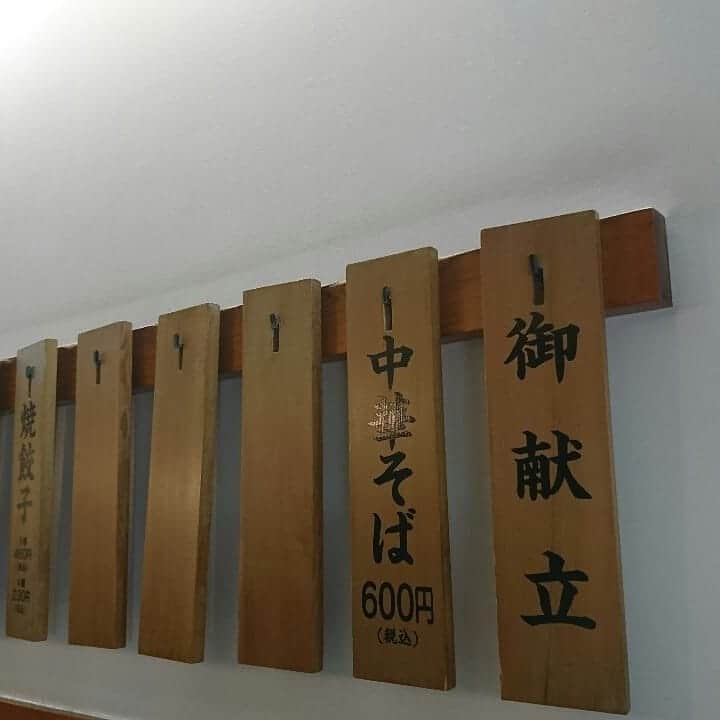 御献立
中華そば
600円
(税込)
焼餃子